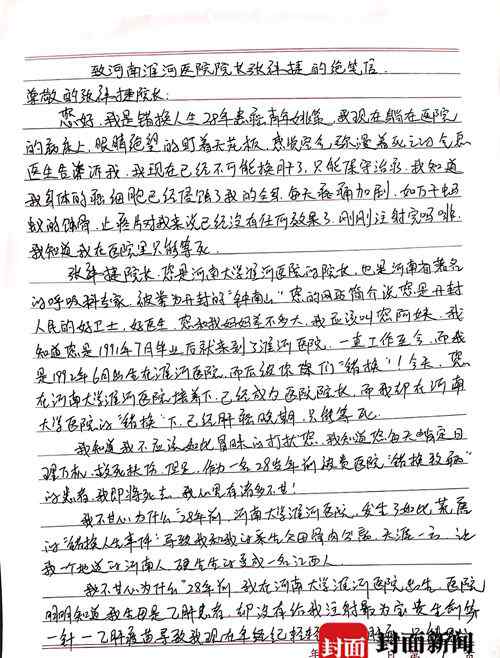 致河南淮河医院院长张祎捷的绝笔信
尊敬的张祎捷院长:
您好,我是错换人生28年患癌青年姚策,我现在躺在医院
的病床上,眼睛绝望的盯着天花板,感觉空气弥漫着死亡的气息
医生告诉我,我现在已经不可能换肝了,只能保守治疗,我知道
我身体的癌细胞已经侵蚀了我的全身,每天疼痛加剧,如万千蚂
蚁的蚀骨,止疼片对我来说已经没有任何效果了,刚刚注射完吗啡,
我知道我在医院里只能等死。
张祎捷院长,您是河南大学淮河医院的院长,也是河南省著名
的呼吸科专家,被誉为开封的“钟南山”您的网站简介说您是开封
人民的好卫士,好医生,您和我妈妈差不多大,我应该叫您阿姨,我
知道您是1991年7月毕业后就来到了淮河医院,一直工作至今,而我
是1992年6月出生在淮河医院,而后被你们“错换”!今天,您
在河南大学淮河医院 下,已经成为医院院长,而我却在河南
大学医院的“错换”下,已经肝癌晚期,只能等死。
我知道我不应该如此冒昧的打扰您,我知道您每天肯定日
理万机,救死扶伤,但是,作为一名28岁年前被贵医院“错换致病”
的患者,我即将死去,我心里有诸多不甘!
我不甘心为什么“28年前,河南大学淮河医院,发生了如此荒唐
的“错换人生事件”导致我和我的养生父母骨肉分离,天涯一方,让
我一个地道的河南人,硬生生的变成一名江西人。
我不甘心为什么“28年前,我在河南大学淮河医院出生,医院
明明知道我生母是乙肝患者,却没有给我注射 第
一针一乙肝疫苗导致我现在年纪轻轻
封面
封面新闻